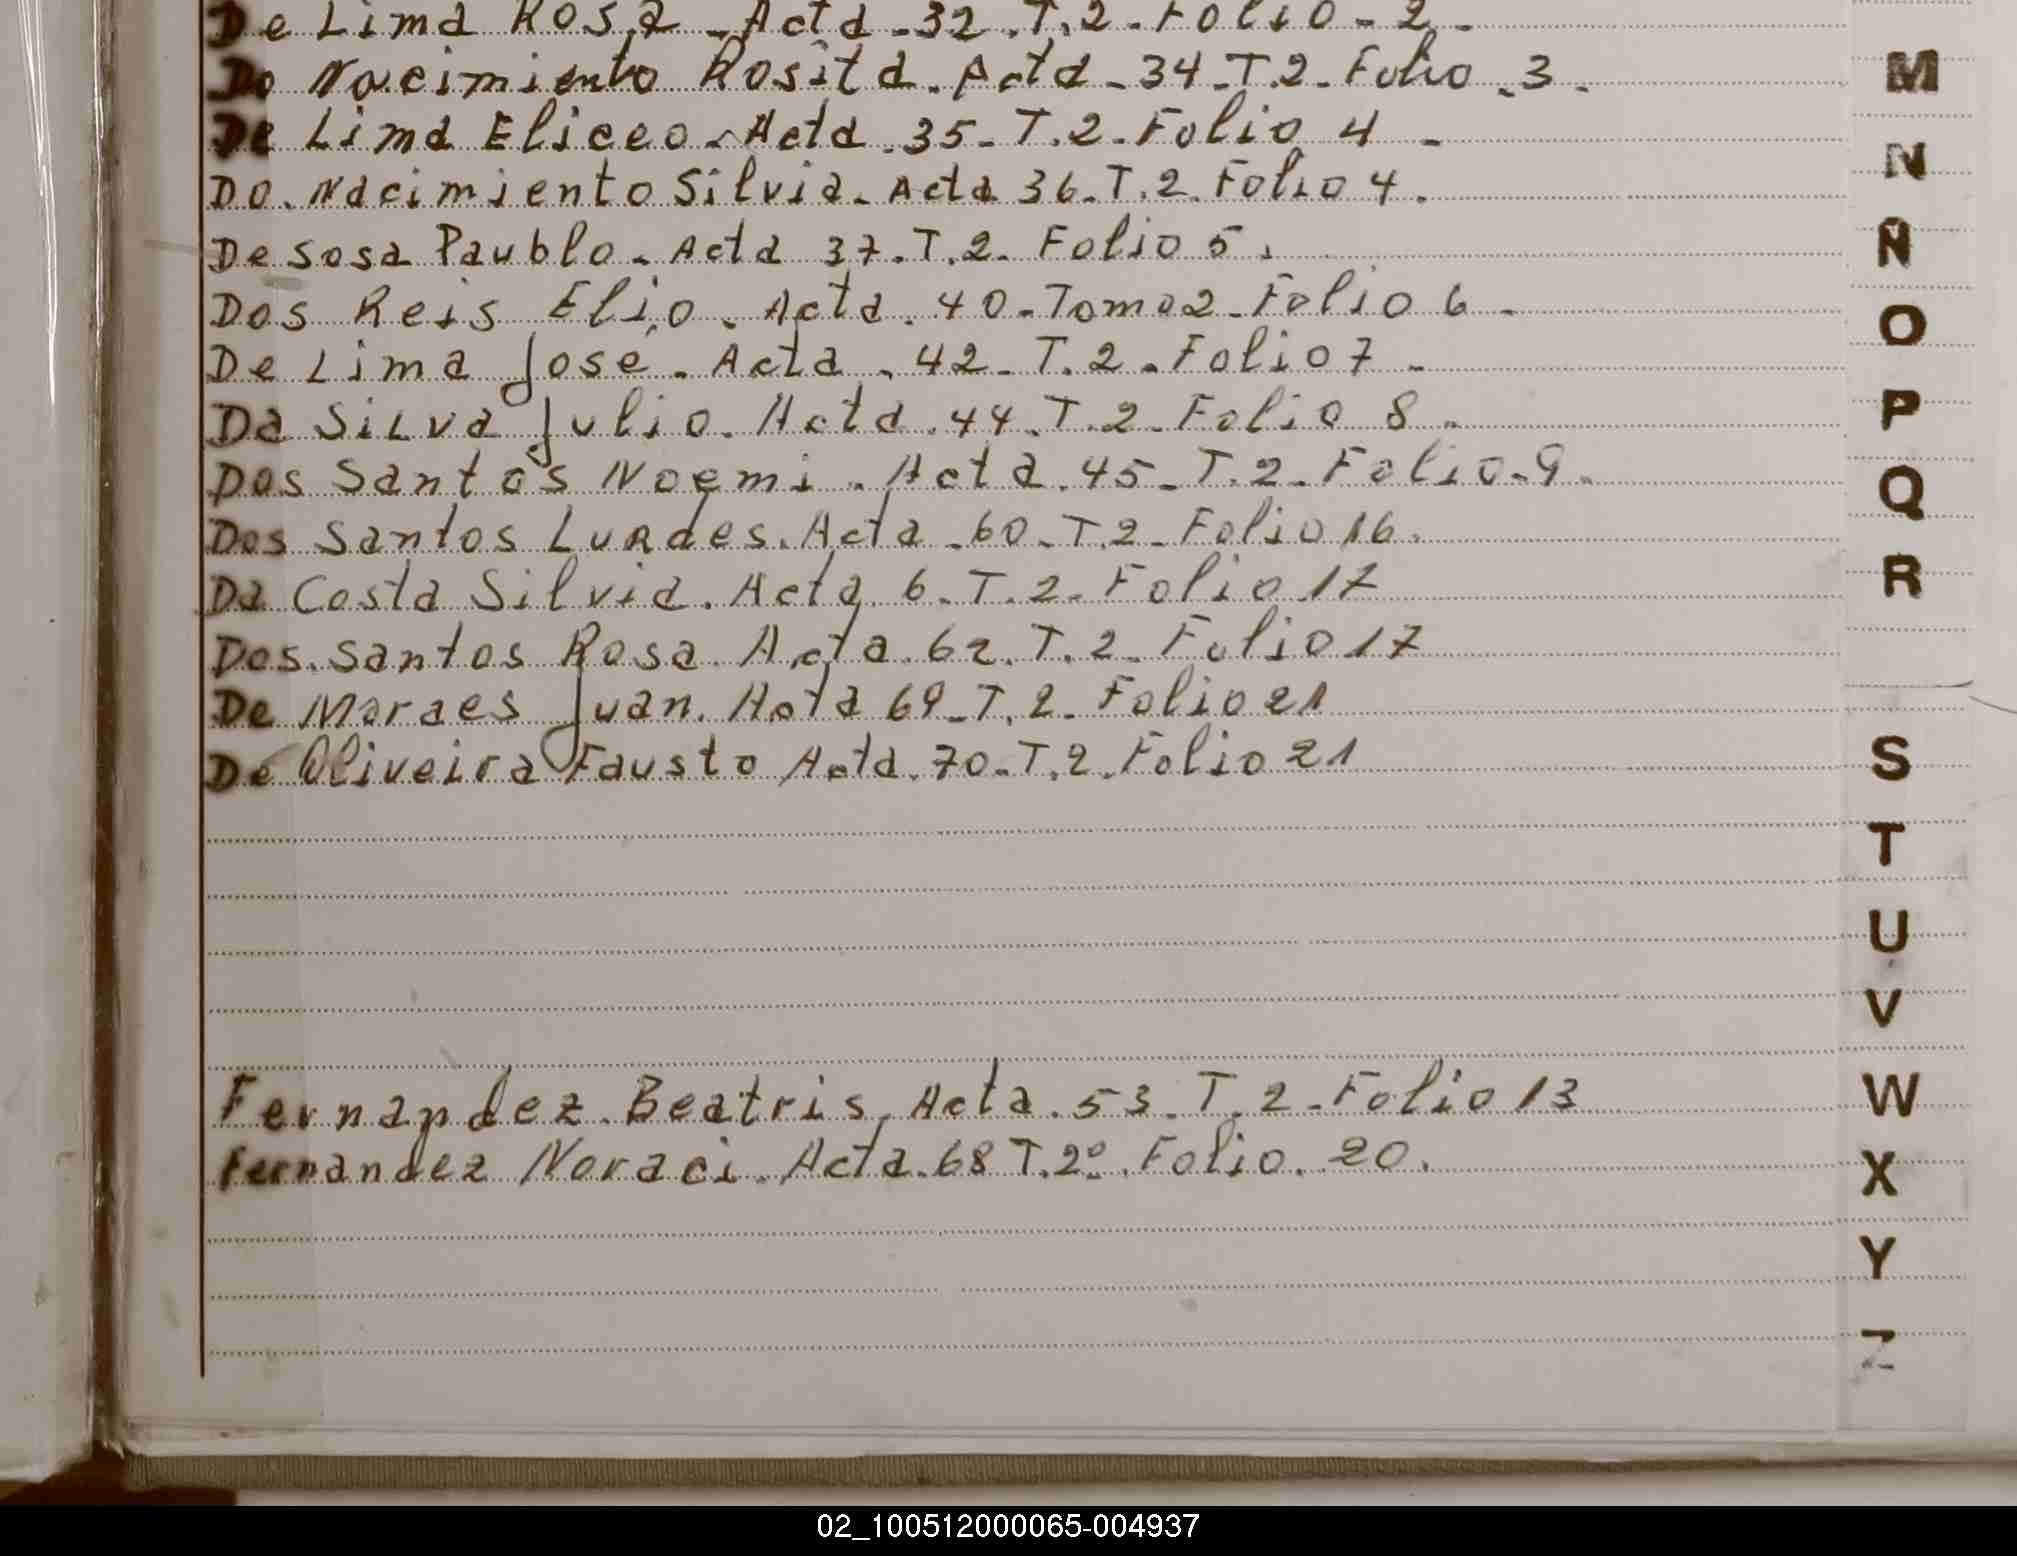 De Lima Rosa - Acta - 32 . T.2 - Folio - 2 -
Do Nacimiento Rosita . Acta - 34 - T.2 - Folio . 3 .
De Lima Eliceo - Acta . 35 - T.2 - Folio 4 -
DO. Nacimiento Silvia . Acta 36 - T.2 Folio 4 .
De Sosa Paublo . Acta 37 . T.2 . Folio 5 .
Dos Reis Elio . Acta . 40 - Tomo 2 - Folio 6 -
De Lima José . Acta . 42 - T.2 . Folio 7 -
Da Silva Julio . Acta . 44 . T.2 - Folio 8 .
Dos Santos Noemi . Acta . 45 - T.2 - Folio - 9 .
Dos Santos Lurdes . Acta - 60 - T.2 - Folio 16 .
Da Costa Silvia . Acta 6 - T.2 - Folio 17
Dos . Santos Rosa . Acta . 62 . T.2 - Folio 17
De Moraes Juan . Acta 69 - T.2 - Folio 21
De Oliveira Fausto Acta . 70 - T.2 . Folio 21
Fernandez . Beatris , Acta . 53 - T.2 - Folio 13
Fernandez Noraci . Acta . 68 T.2º . Folio . 20 .
M
N
Ñ
O
P
Q
R
S
T
U
V
W
X
Y
Z
02_100512000065-004937